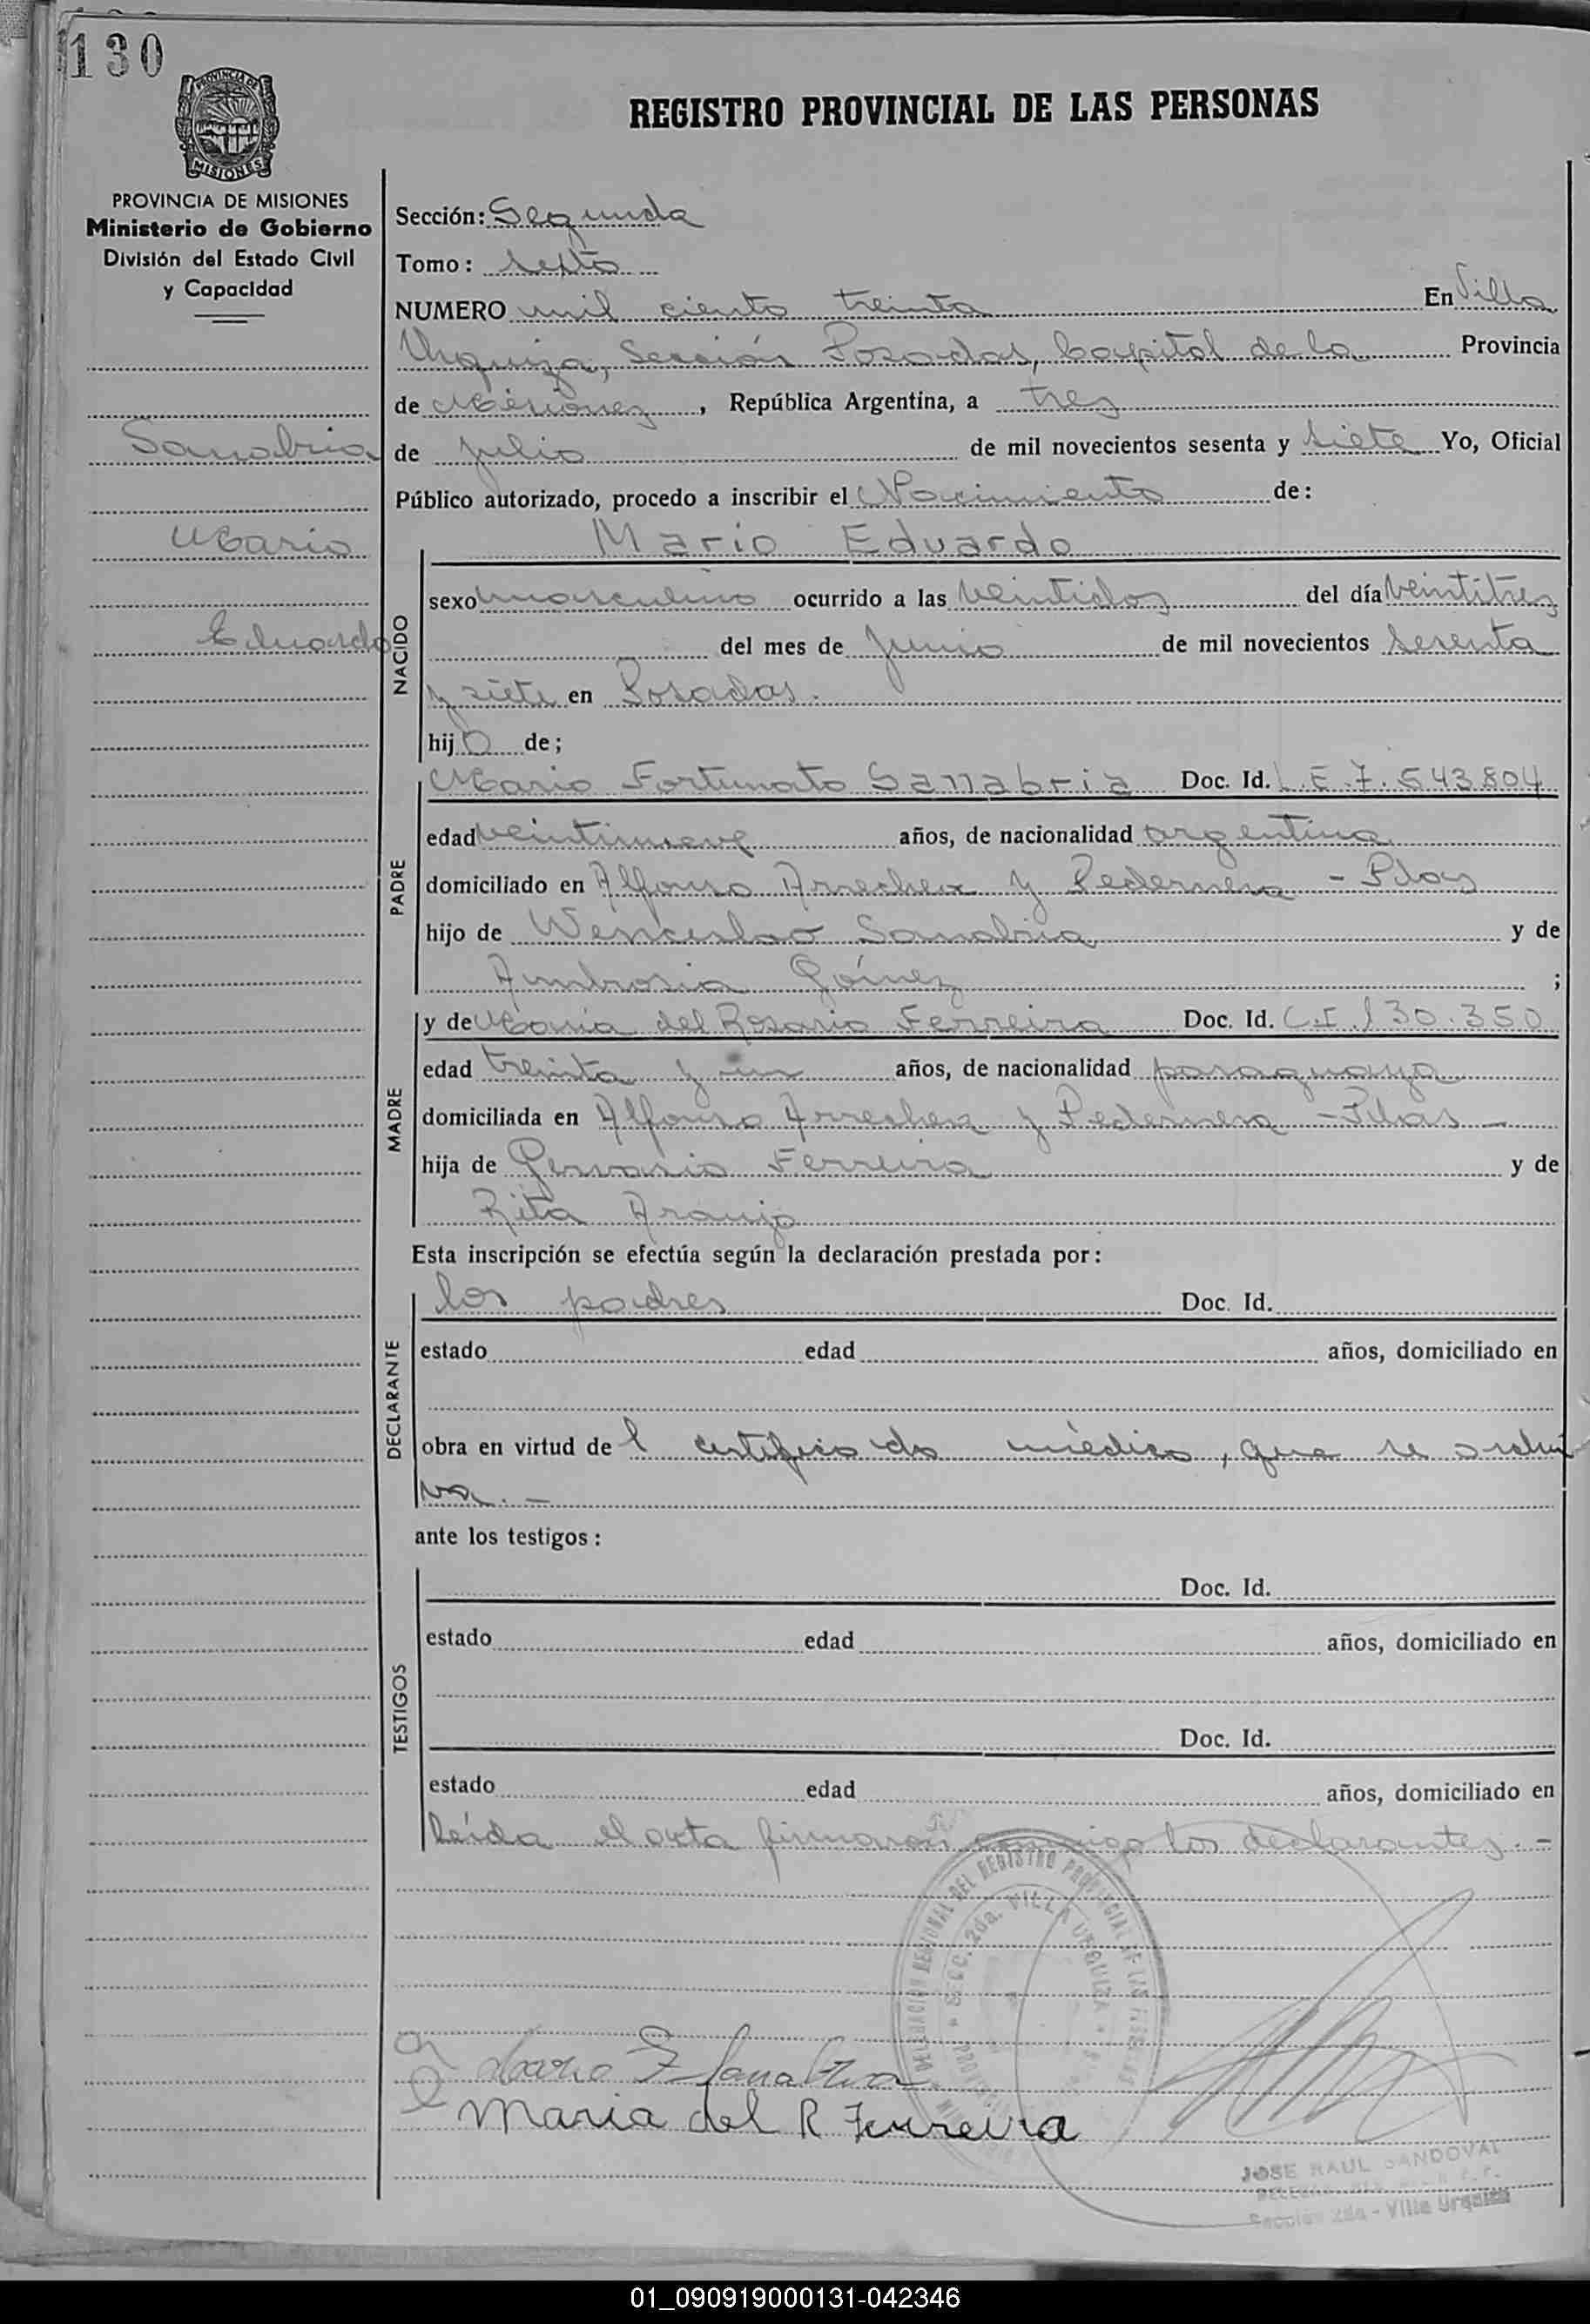 130
PROVINCIA DE MISIONES
PROVINCIA DE MISIONES
Ministerio de Gobierno
División del Estado Civil
y Capacidad
Sanabria
Mario
Eduardo
REGISTRO PROVINCIAL DE LAS PERSONAS
Sección: Segunda
Tomo: Sexto
NUMERO mil ciento treinta En Villa
Urquiza, Sección Posadas, Capital de la Provincia
de Misiones, República Argentina, a tres
de julio de mil novecientos sesenta y siete Yo, Oficial
Público autorizado, procedo a inscribir el Nacimiento de:
Mario Eduardo
NACIDO
sexo masculino ocurrido a las veintidos del día veintitres
del mes de junio de mil novecientos sesenta
y siete en Posadas.
hijo de;
PADRE
Mario Fortunato Sanabria Doc. Id. L.E.7.543.804
edad veintinueve años, de nacionalidad argentina
domiciliado en Alfonso Arrechea y Pedernera - Pdas
hijo de Wenceslao Sanabria y de
Ambrosia Gómez ;
MADRE
y de María del Rosario Ferreira Doc. Id. C.I. 130.350
edad treinta y un años, de nacionalidad paraguaya
domiciliada en Alfonso Arrechea y Pedernera - Pdas -
hija de Gervasio Ferreira y de
Rita Araujo
Esta inscripción se efectúa según la declaración prestada por:
DECLARANTE
los padres Doc. Id.
estado edad años, domiciliado en
obra en virtud del certificado médico, que se archi
va. -
ante los testigos:
TESTIGOS
Doc. Id.
estado edad años, domiciliado en
Doc. Id.
estado edad años, domiciliado en
Leída el acta firmaron conmigo los declarantes. -
DELEGACION REGIONAL DEL REGISTRO PROVINCIAL DE LAS
SECC. 2da. VILLA URQUIZA
Mario F Sanabria
Maria del R Ferreira
JOSE RAUL SANDOVAL
Sección 2da - Villa Urquiza
01_090919000131-042346